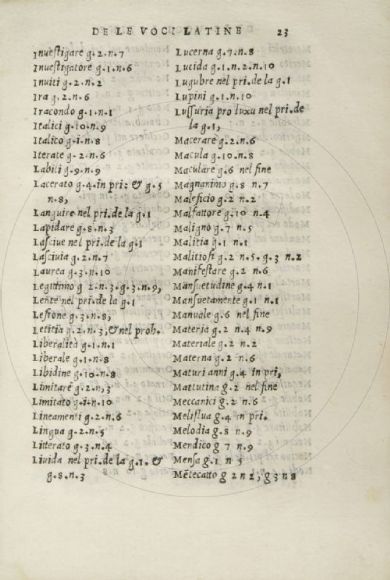 DE LE VOCI LATINE 23
Inuestigare g.2.n.7
Inuestigatore g.1.n.6
Inuiti g.2.n.2
Ira g.2.n.6
Iracondo g.1.n.1
Italici g.10.n.9
Italico g.1.n.8
Iterate g.2.n.6
Labili g.9.n.9
Lacerato g.4.in pri; & g.5
n.8,
Languire nel pri.de la g.1
Lapidare g.8.n.3
Lasciue nel pri.de la g.1
Lasciuia g.2.n.7
Laurea g.3.n.10
Legitimo g 2.n.3.g.3.n.9,
Lente nel pri.de la g.1
Lessione g.3.n.8,
Letitia g.2.n.3,& nel proh.
Liberalità g.1.n.1
Liberale g.1.n.8
Libidine g.10.n.8
Limitare g.2.n.3
Limitato g.1.n.10
Lineamenti g.2.n.6
Lingua g.2.n.5
Litterato g.3.n.4
Liuida nel pri.de la g.1. &
g.8.n.3
Lucerna g.7.n.8
Lucida g.1.n.2.n.10
Lugubre nel pri.de la g.1
Lupini g.1.n.10
Lussuria pro luxu nel pri.de
la g.1,
Macerare g.2.n.6
Macula g.10.n.8
Maculare g.6 nel fine
Magnanimo g.8 n.7
Maleficio g.2 n.2
Malfattore g.10 n.4
Maligno g.7 n.5
Malitia g.1 n.1
Malitiose g.2 n.5.g.3 n.2
Manifestare g.2 n.6
Mansuetudine g.4 n.1
Mansuetamente g.1 n.1
Manuale g.6 nel fine
Materia g.2 n.4 n.9
Materiale g.2 n.2
Materna g.2 n.6
Maturi anni g.4 in pri,
Mattutina g.2 nel fine
Meccanici g.2 n.6
Melliflua g.4 in pri.
Melodia g.8 n.9
Mendico g 7 n.9
Mensa g.1 n 5
Mētecatto g 2 n 2, g 3 n 8